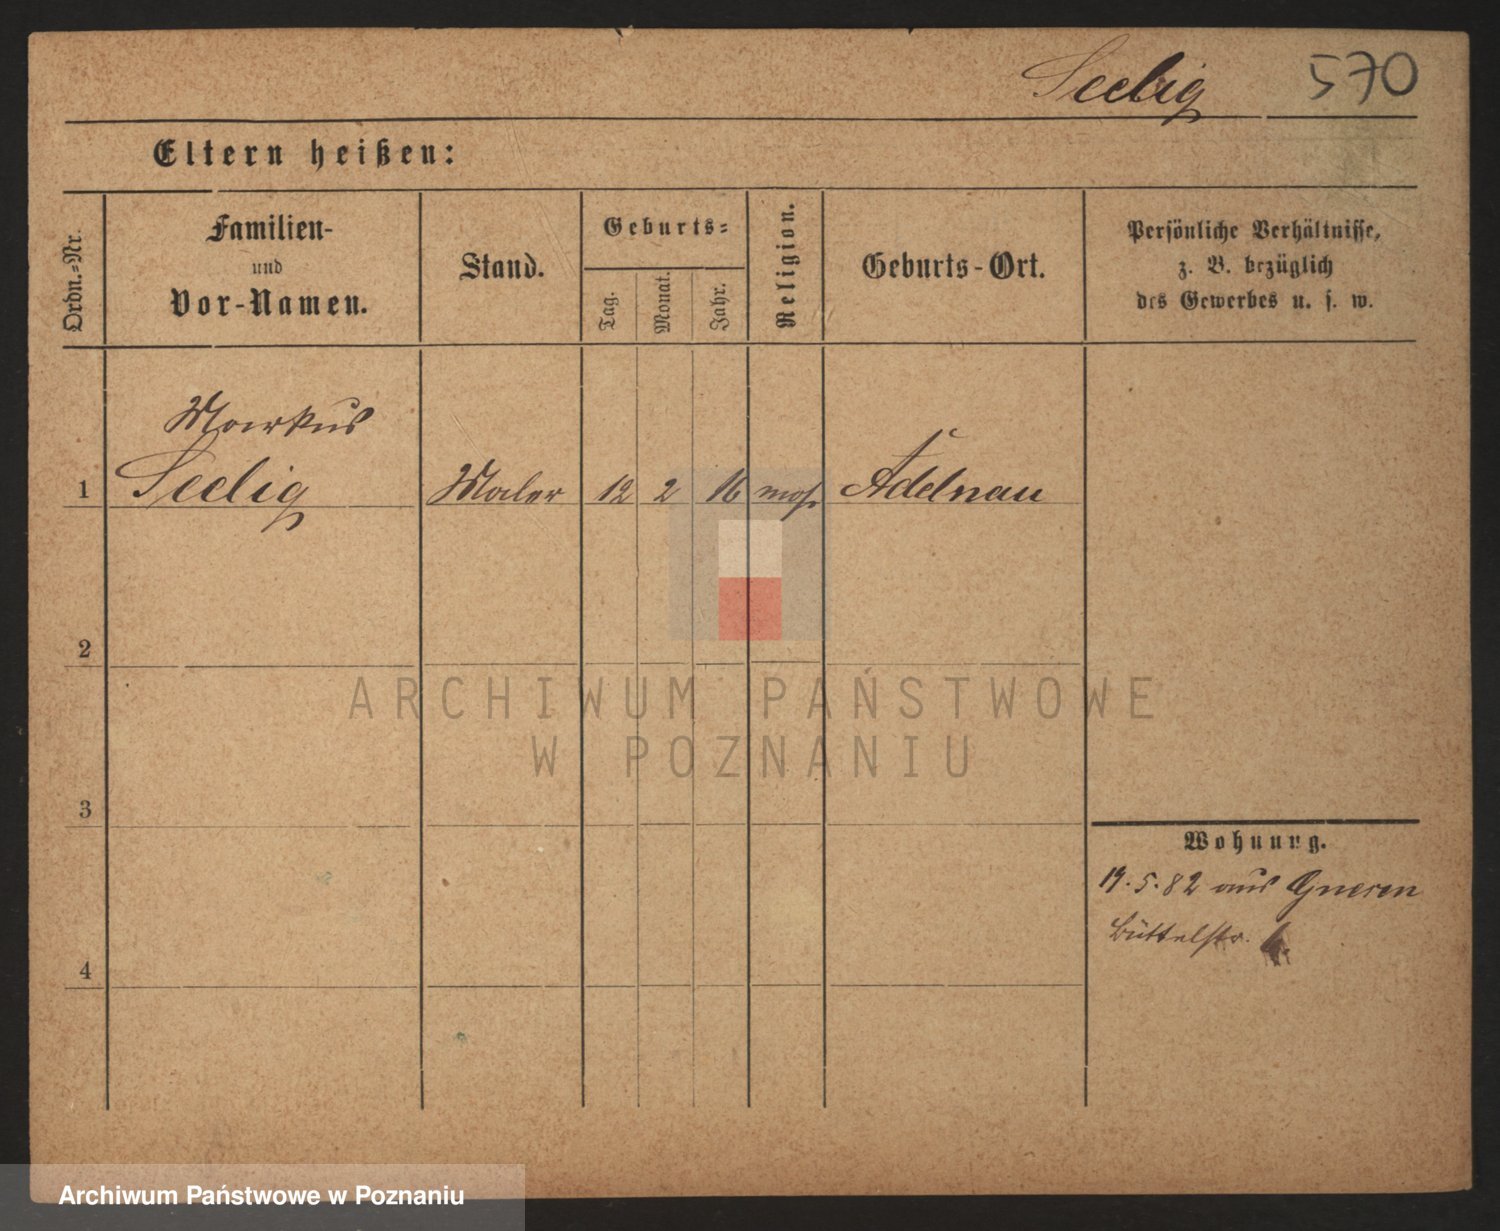 Seelig 570
Eltern heißen:
Ordn.=Nr.
Familien-
und
Vor-Namen.
Stand.
Geburts=
Tag.
Monat.
Jahr.
Religion.
Geburts-Ort.
Persönliche Verhältnisse,
z. B. bezüglich
des Gewerbes u. s. w.
Markus
1 Seelig Maler 12 2 16 mos. Adelnau
2
3
4
Wohnung.
19.5.82 aus Gnesen
Büttelstr.
ARCHIWUM PAŃSTWOWE
W POZNANIU
Archiwum Państwowe w Poznaniu